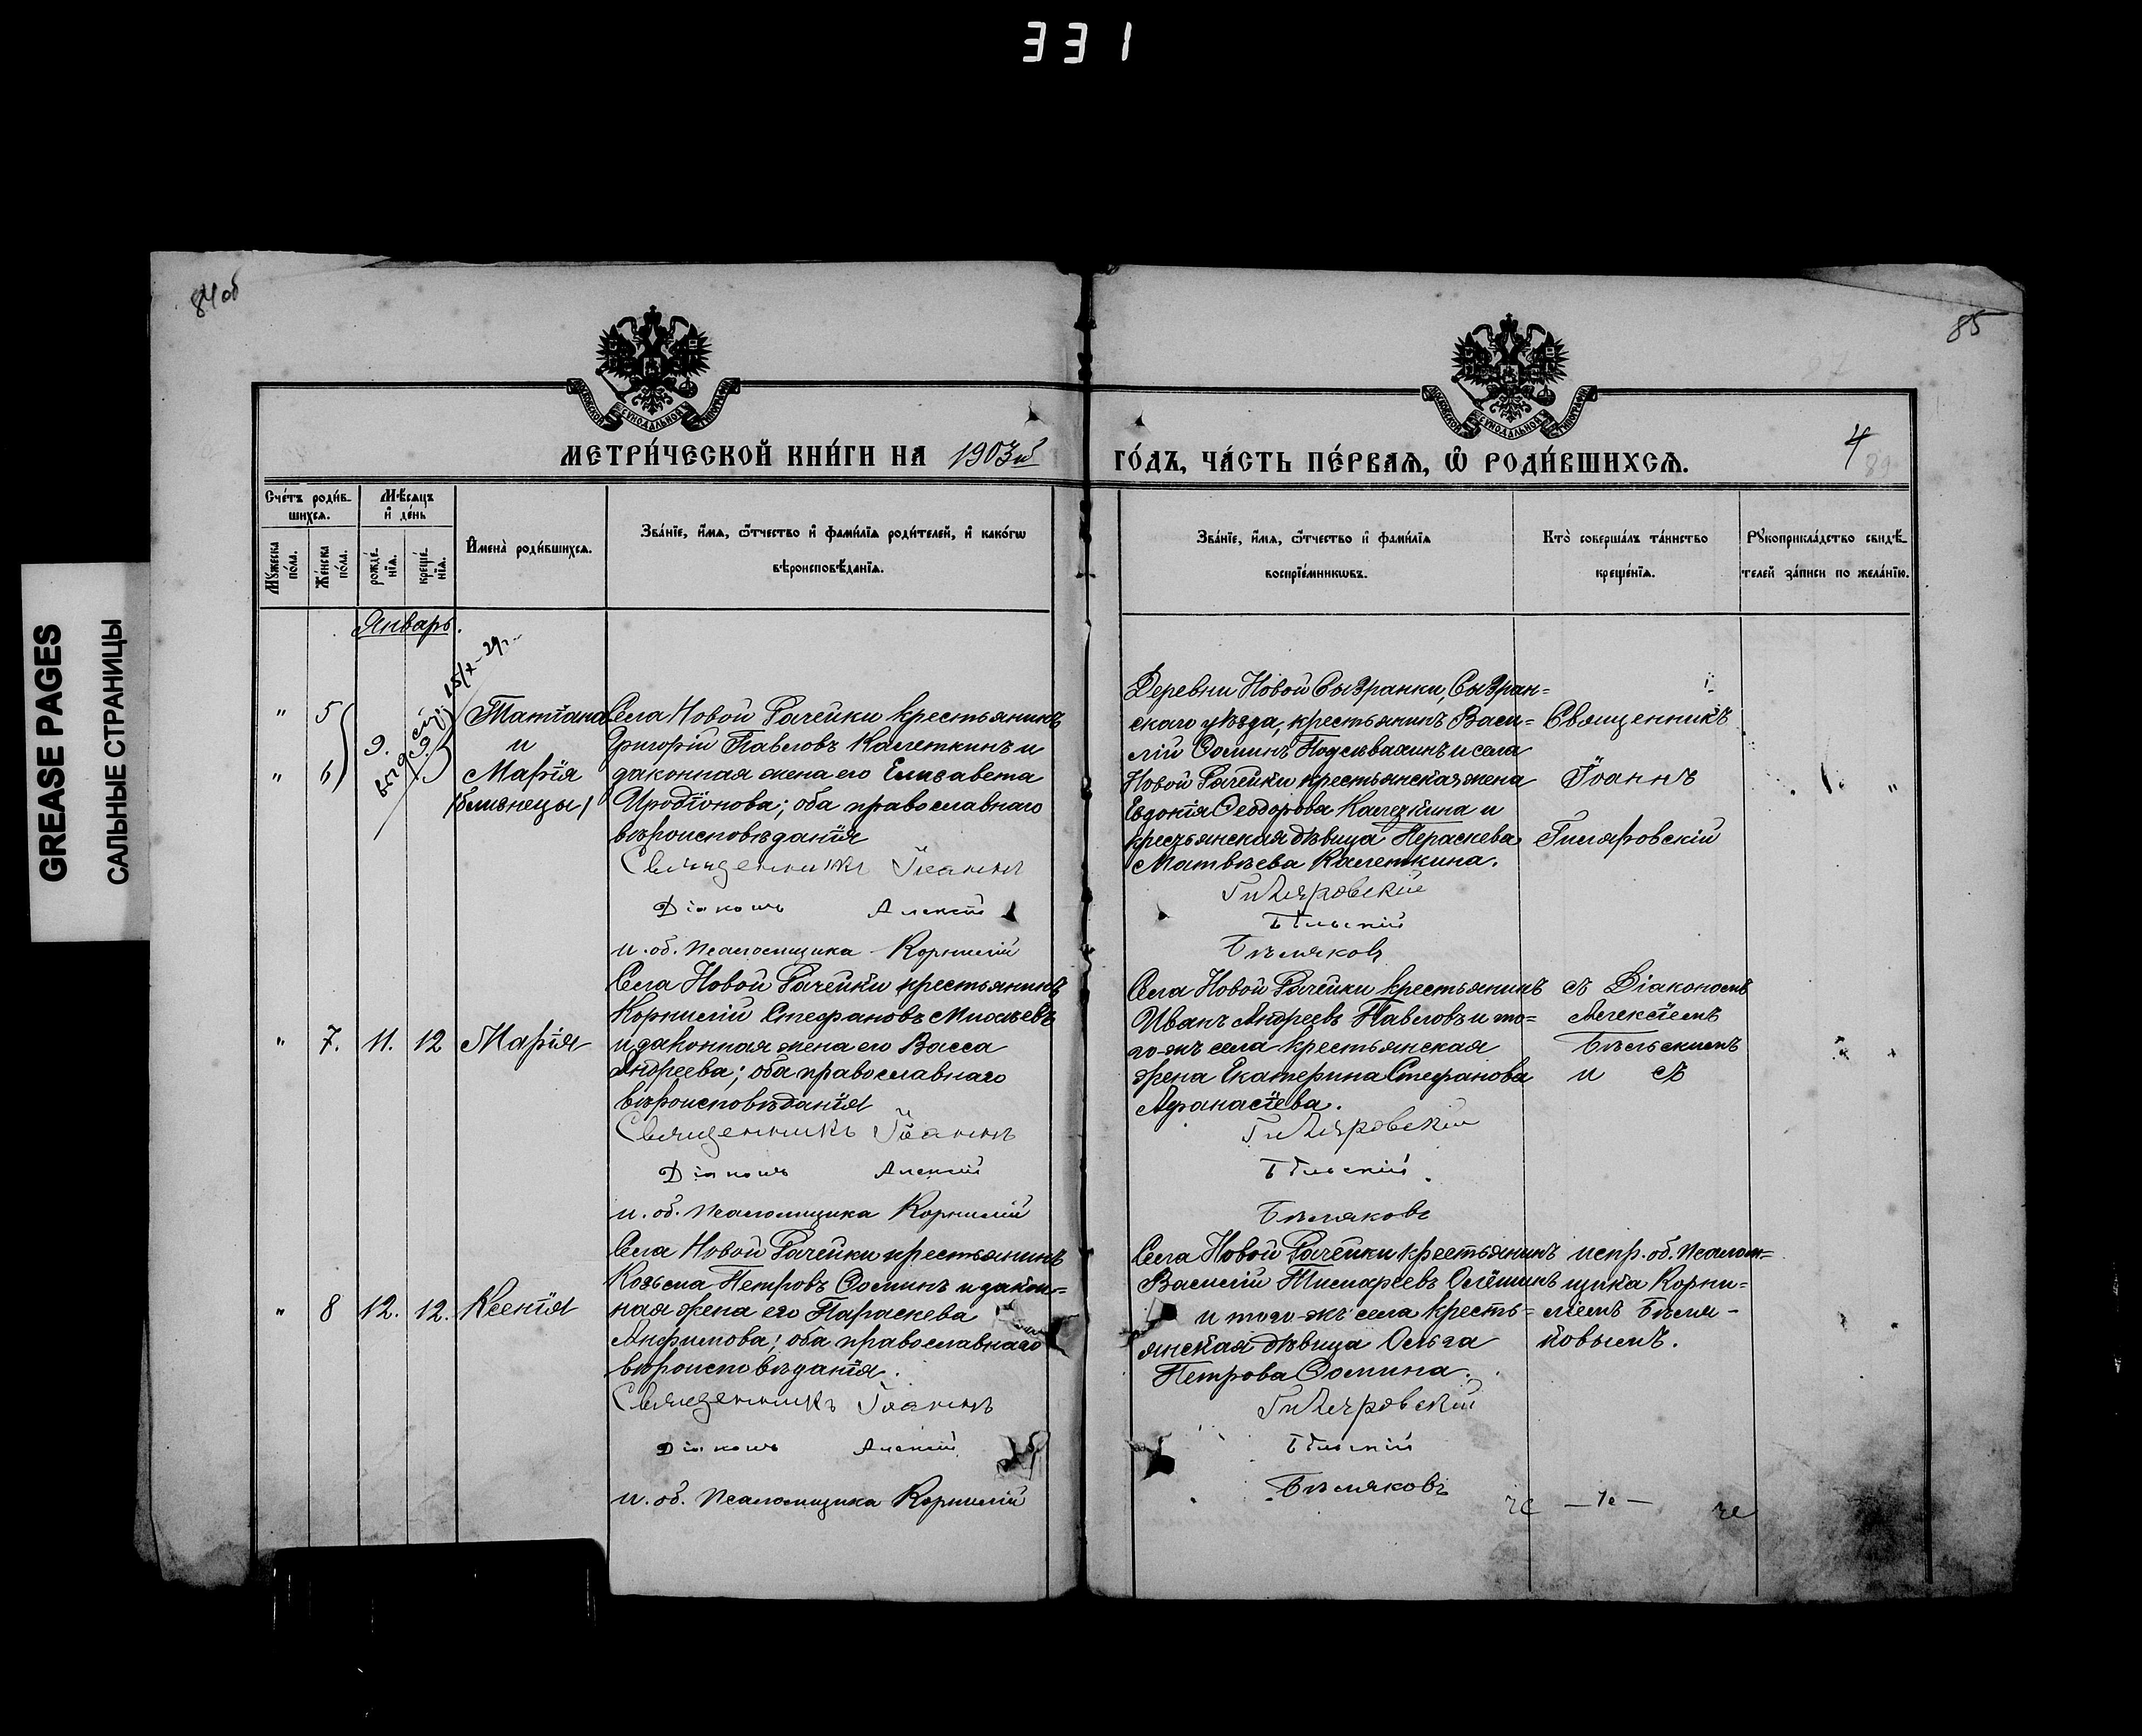 331
GREASE PAGES
САЛЬНЫЕ СТРАНИЦЫ
84 об
85
МЕТРИ́ЧЕСКОЙ КНИ́ГИ НА 1903й
ГО́ДЪ, ЧА́СТЬ ПЕ́РВАѦ, Ѿ РОДИ́ВШИХСѦ.
4
Сче́тъ роди́в-
шихсѧ.
Мѣ́сѧцъ
и҆ де́нь
Мꙋ́жеска
по́ла.
Же́нска
по́ла.
рожде́-
нїѧ.
креще́-
нїѧ.
И҆мена̀ роди́вшихсѧ.
Зва́нїе, и҆́мѧ, ѻ҆́тчество и҆ фами́лїѧ роди́телей, и҆ како́гѡ
вѣроисповѣ́данїѧ.
Зва́нїе, и҆́мѧ, ѻ҆́тчество и҆ фами́лїѧ
воспрїе́мникѡвъ.
Кто̀ соверша́лъ та́инство
креще́нїѧ.
Рꙋкоприкла́дство свидѣ́-
телей за́писи по жела́нїю.
Январь.
15/X-29г.
" 5
" 6
9. 9.
Татіана
и
Марія
/близнецы/
Села Новой Рачейки крестьянинъ
Григорій Павловъ Калеткинъ и
законная жена его Елисавета
Иродіонова; оба православнаго
вѣроисповѣданія
Священникъ Іоаннъ
Діаконъ Алексій
и. об. псаломщика Корнилій
Деревни Новой Сызранки, Сызран=
скаго уѣзда, крестьянинъ Васи=
лій Ѳоминъ и села
Новой Рачейки крестьянская жена
Евдокія Ѳеодорова и
крестьянская дѣвица Параскева
Матвѣева Калеткина.
Гиляровскій
Бѣльскій
Бѣляковъ
Священникъ
Іоаннъ
Гиляровскій
"
" 7. 11. 12 Марія
Села Новой Рачейки крестьянинъ
Корнилій Стефановъ Михѣевъ
и законная жена его Васса
Андреева; оба православнаго
вѣроисповѣданія
Священникъ Іоаннъ
Діаконъ Алексій
и. об. псаломщика Корнилій
Села Новой Рачейки крестьянинъ
Иванъ Андреевъ Павловъ и то=
го-жъ села крестьянская
жена Екатерина Стефанова
Афанасіева.
Гиляровскій
Бѣльскій
Бѣляковъ
съ Діакономъ
Алексіемъ
Бѣльскимъ
и съ
" 8 12. 12. Ксенія
Села Новой Рачейки крестьянинъ
Козьма Петровъ Ѳоминъ и закон=
ная жена его Параскева
Анфимова; оба православнаго
вѣроисповѣданія.
Священникъ Іоаннъ
Діаконъ Алексій
и. об. псаломщика Корнилій
Села Новой Рачейки крестьянинъ
Василій
и того-жъ села кресть=
янская дѣвица Ольга
Петрова Ѳомина.
Гиляровскій
Бѣльскій
Бѣляковъ
испр. об. псалом=
щика Корни=
ліемъ Бѣля-
ковымъ.